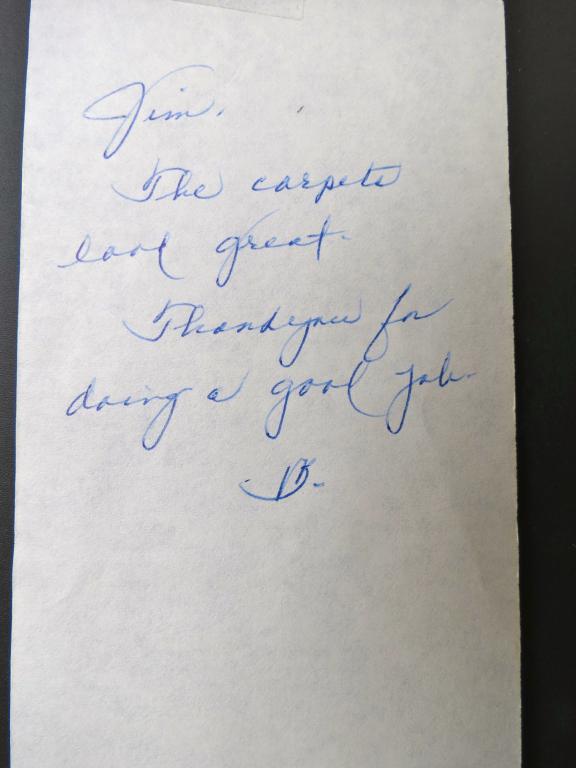 Jim.
The carpets
look great.
Thankyou for
doing a good job.
B.